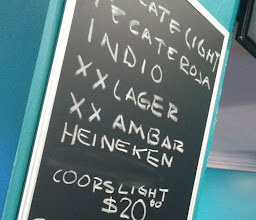 TECATE LIGHT
TECATE ROJA
INDIO
XX LAGER
XX AMBAR
HEINEKEN
COORSLIGHT
$20.00